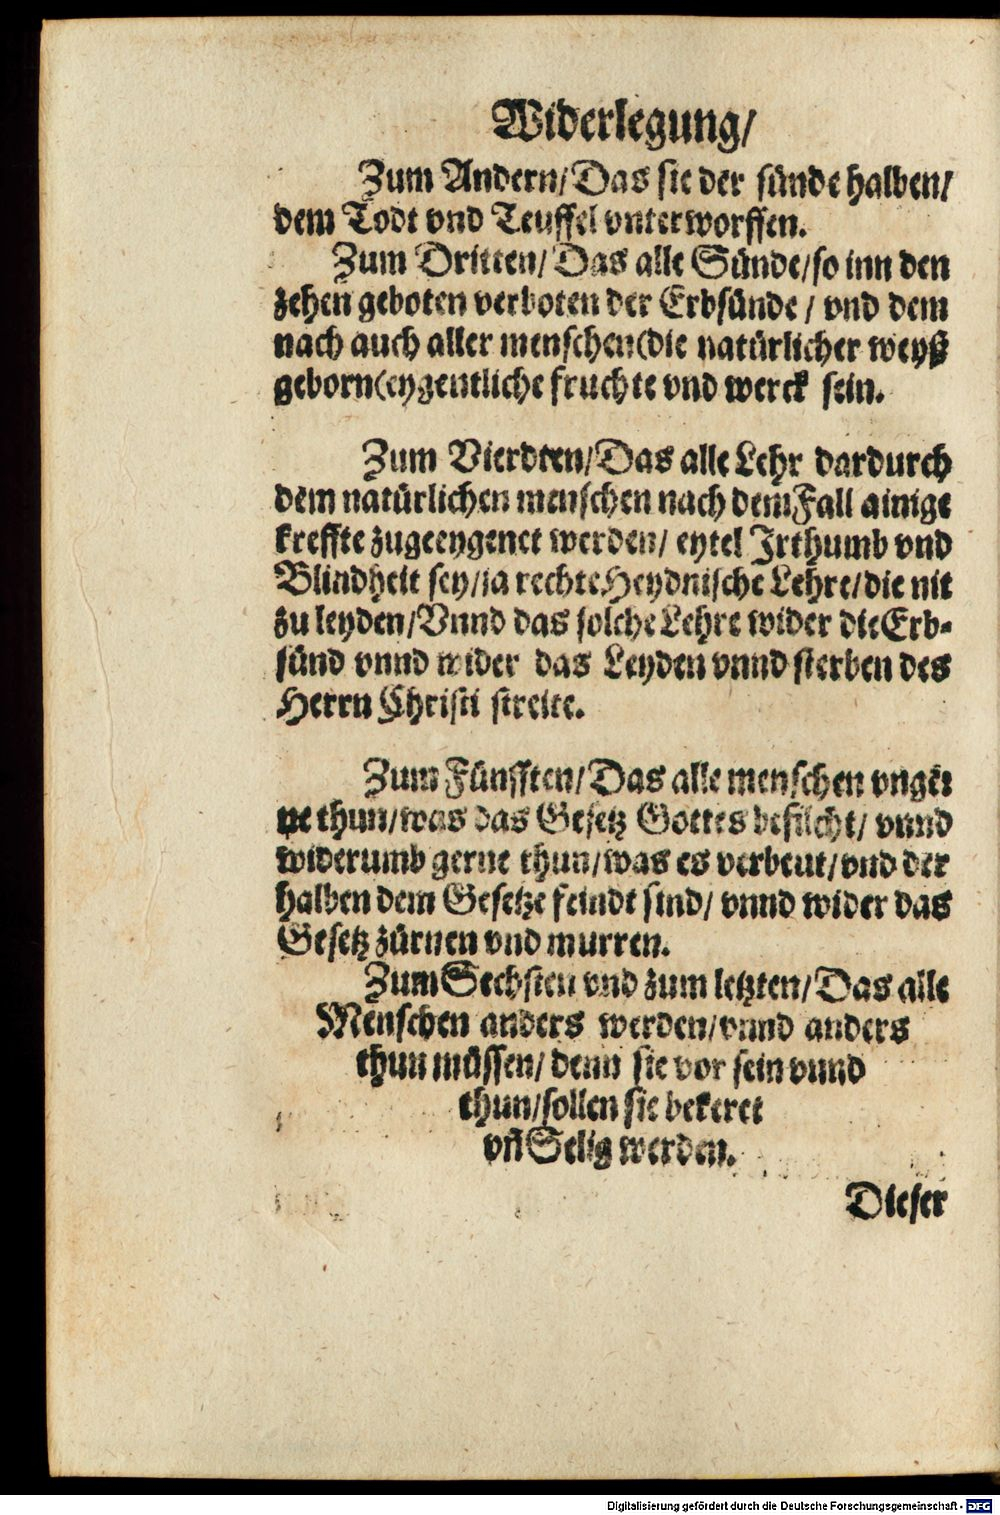 Widerlegung/
Zum Andern/Das sie der sünde halben/
dem Todt vnd Teuffel vnterworffen.
Zum Dritten/Das alle Sünde/so inn den
zehen geboten verboten der Erbsünde/ vnd dem
nach auch aller menschen(die natürlicher weyß
geborn(eygentliche fruchte vnd werck sein.
Zum Vierdten/Das alle Lehr dardurch
dem natürlichen menschen nach dem Fall ainige
kreffte zugeeygenet werden/ eytel Irthumb vnd
Blindheit sey/ja rechte Heydnische Lehre/die nit
zu leyden/Vnnd das solche Lehre wider die Erb-
sünd vnnd wider das Leyden vnnd sterben des
Herrn Christi streite.
Zum Fünfften/Das alle menschen vnger
ne thun/was das Gesetz Gottes befilcht/ vnnd
widerumb gerne thun/was es verbeut/vnd der
halben dem Gesetze feindt sind/ vnnd wider das
Gesetz zürnen vnd murren.
Zum Sechsten vnd zum letzten/Das alle
Menschen anders werden/vnnd anders
thun müssen/ denn sie vor sein vnnd
thun/sollen sie bekeret
vñ Selig werden.
Dieser
Digitalisierung gefördert durch die Deutsche Forschungsgemeinschaft - DFG